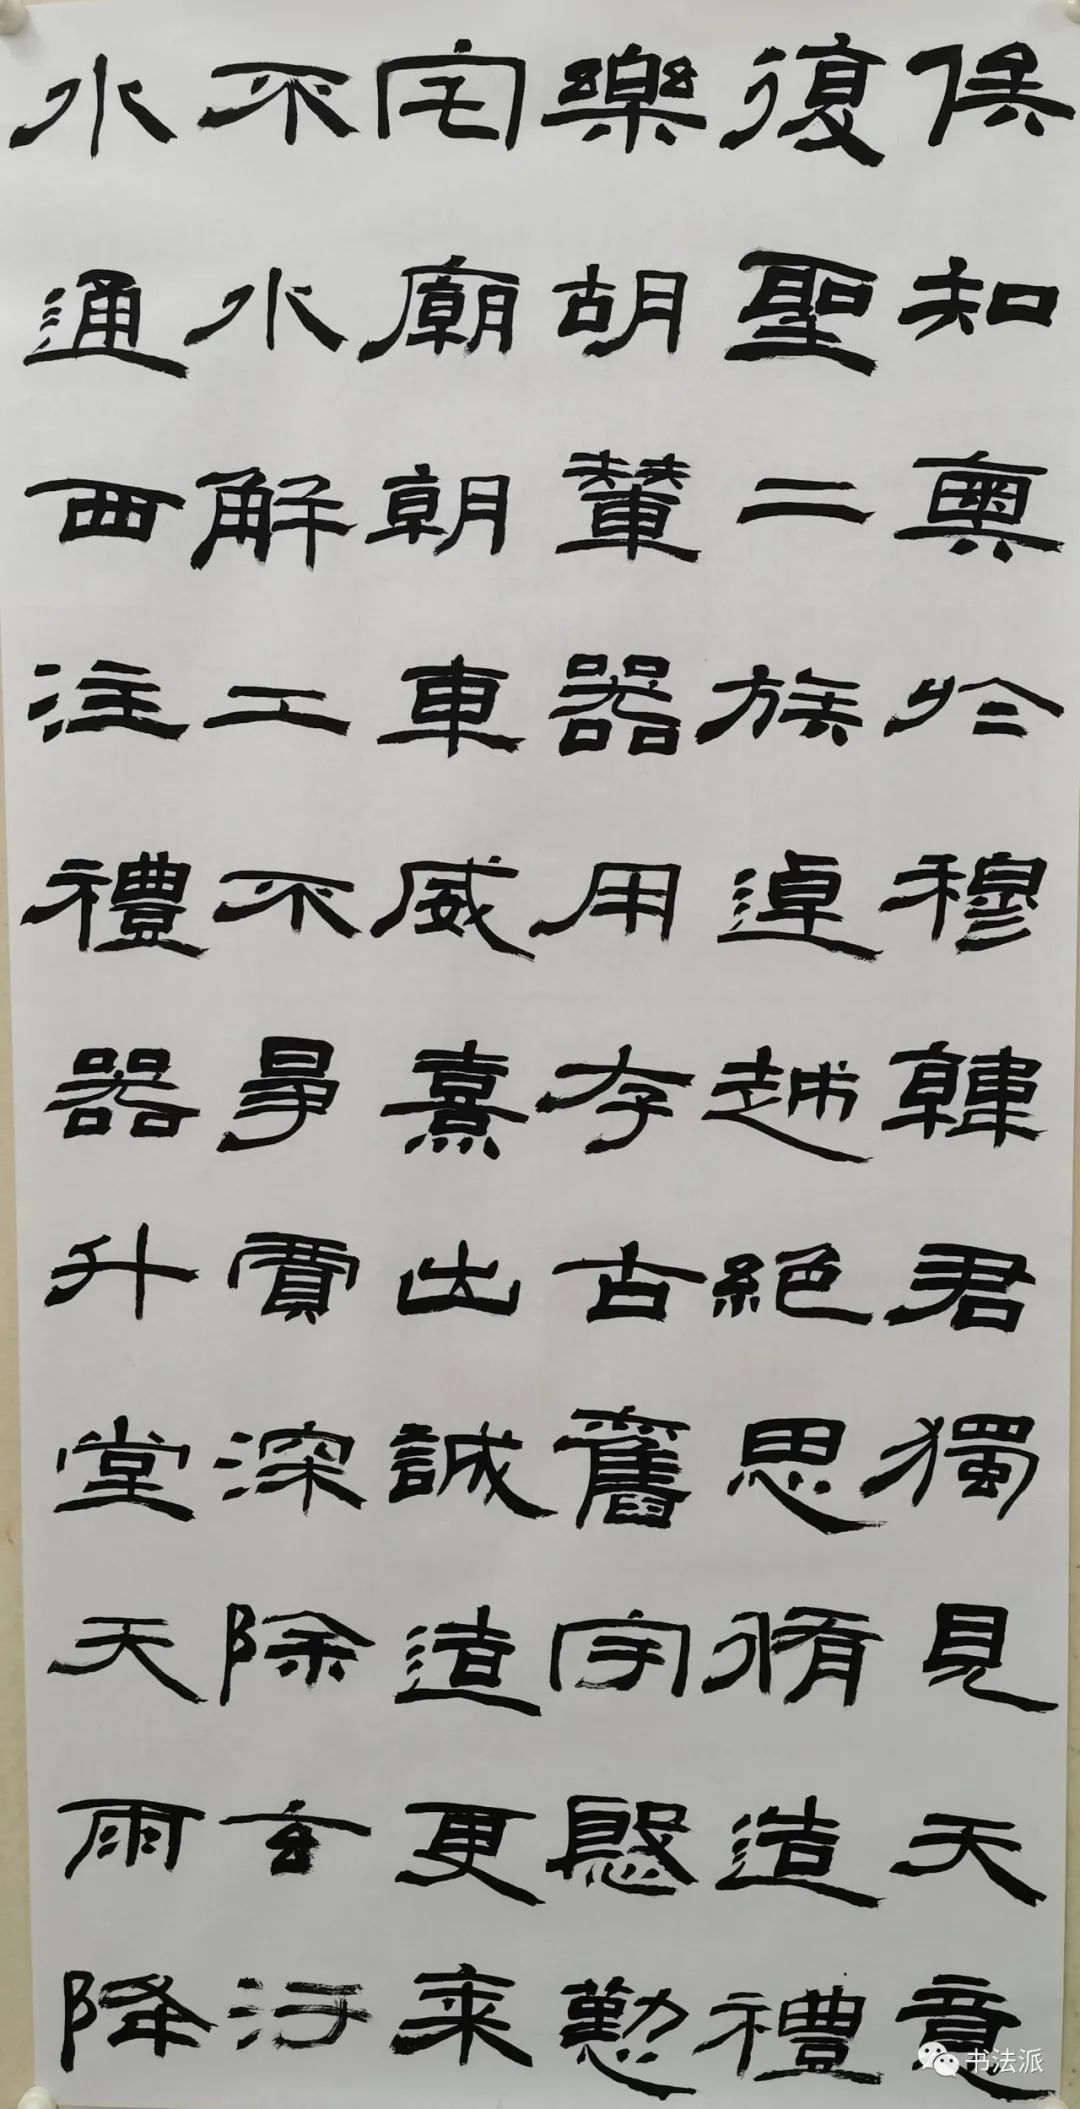 俟知奥於穆韓君獨見天意
復聖二族逴越絶思脩造禮
樂胡輦器用存古舊宇慇懃
宅廟朝車威熹出誠造更来
不水解工不爭賈深除玄汙
水通四注禮器升堂天雨降
书法派